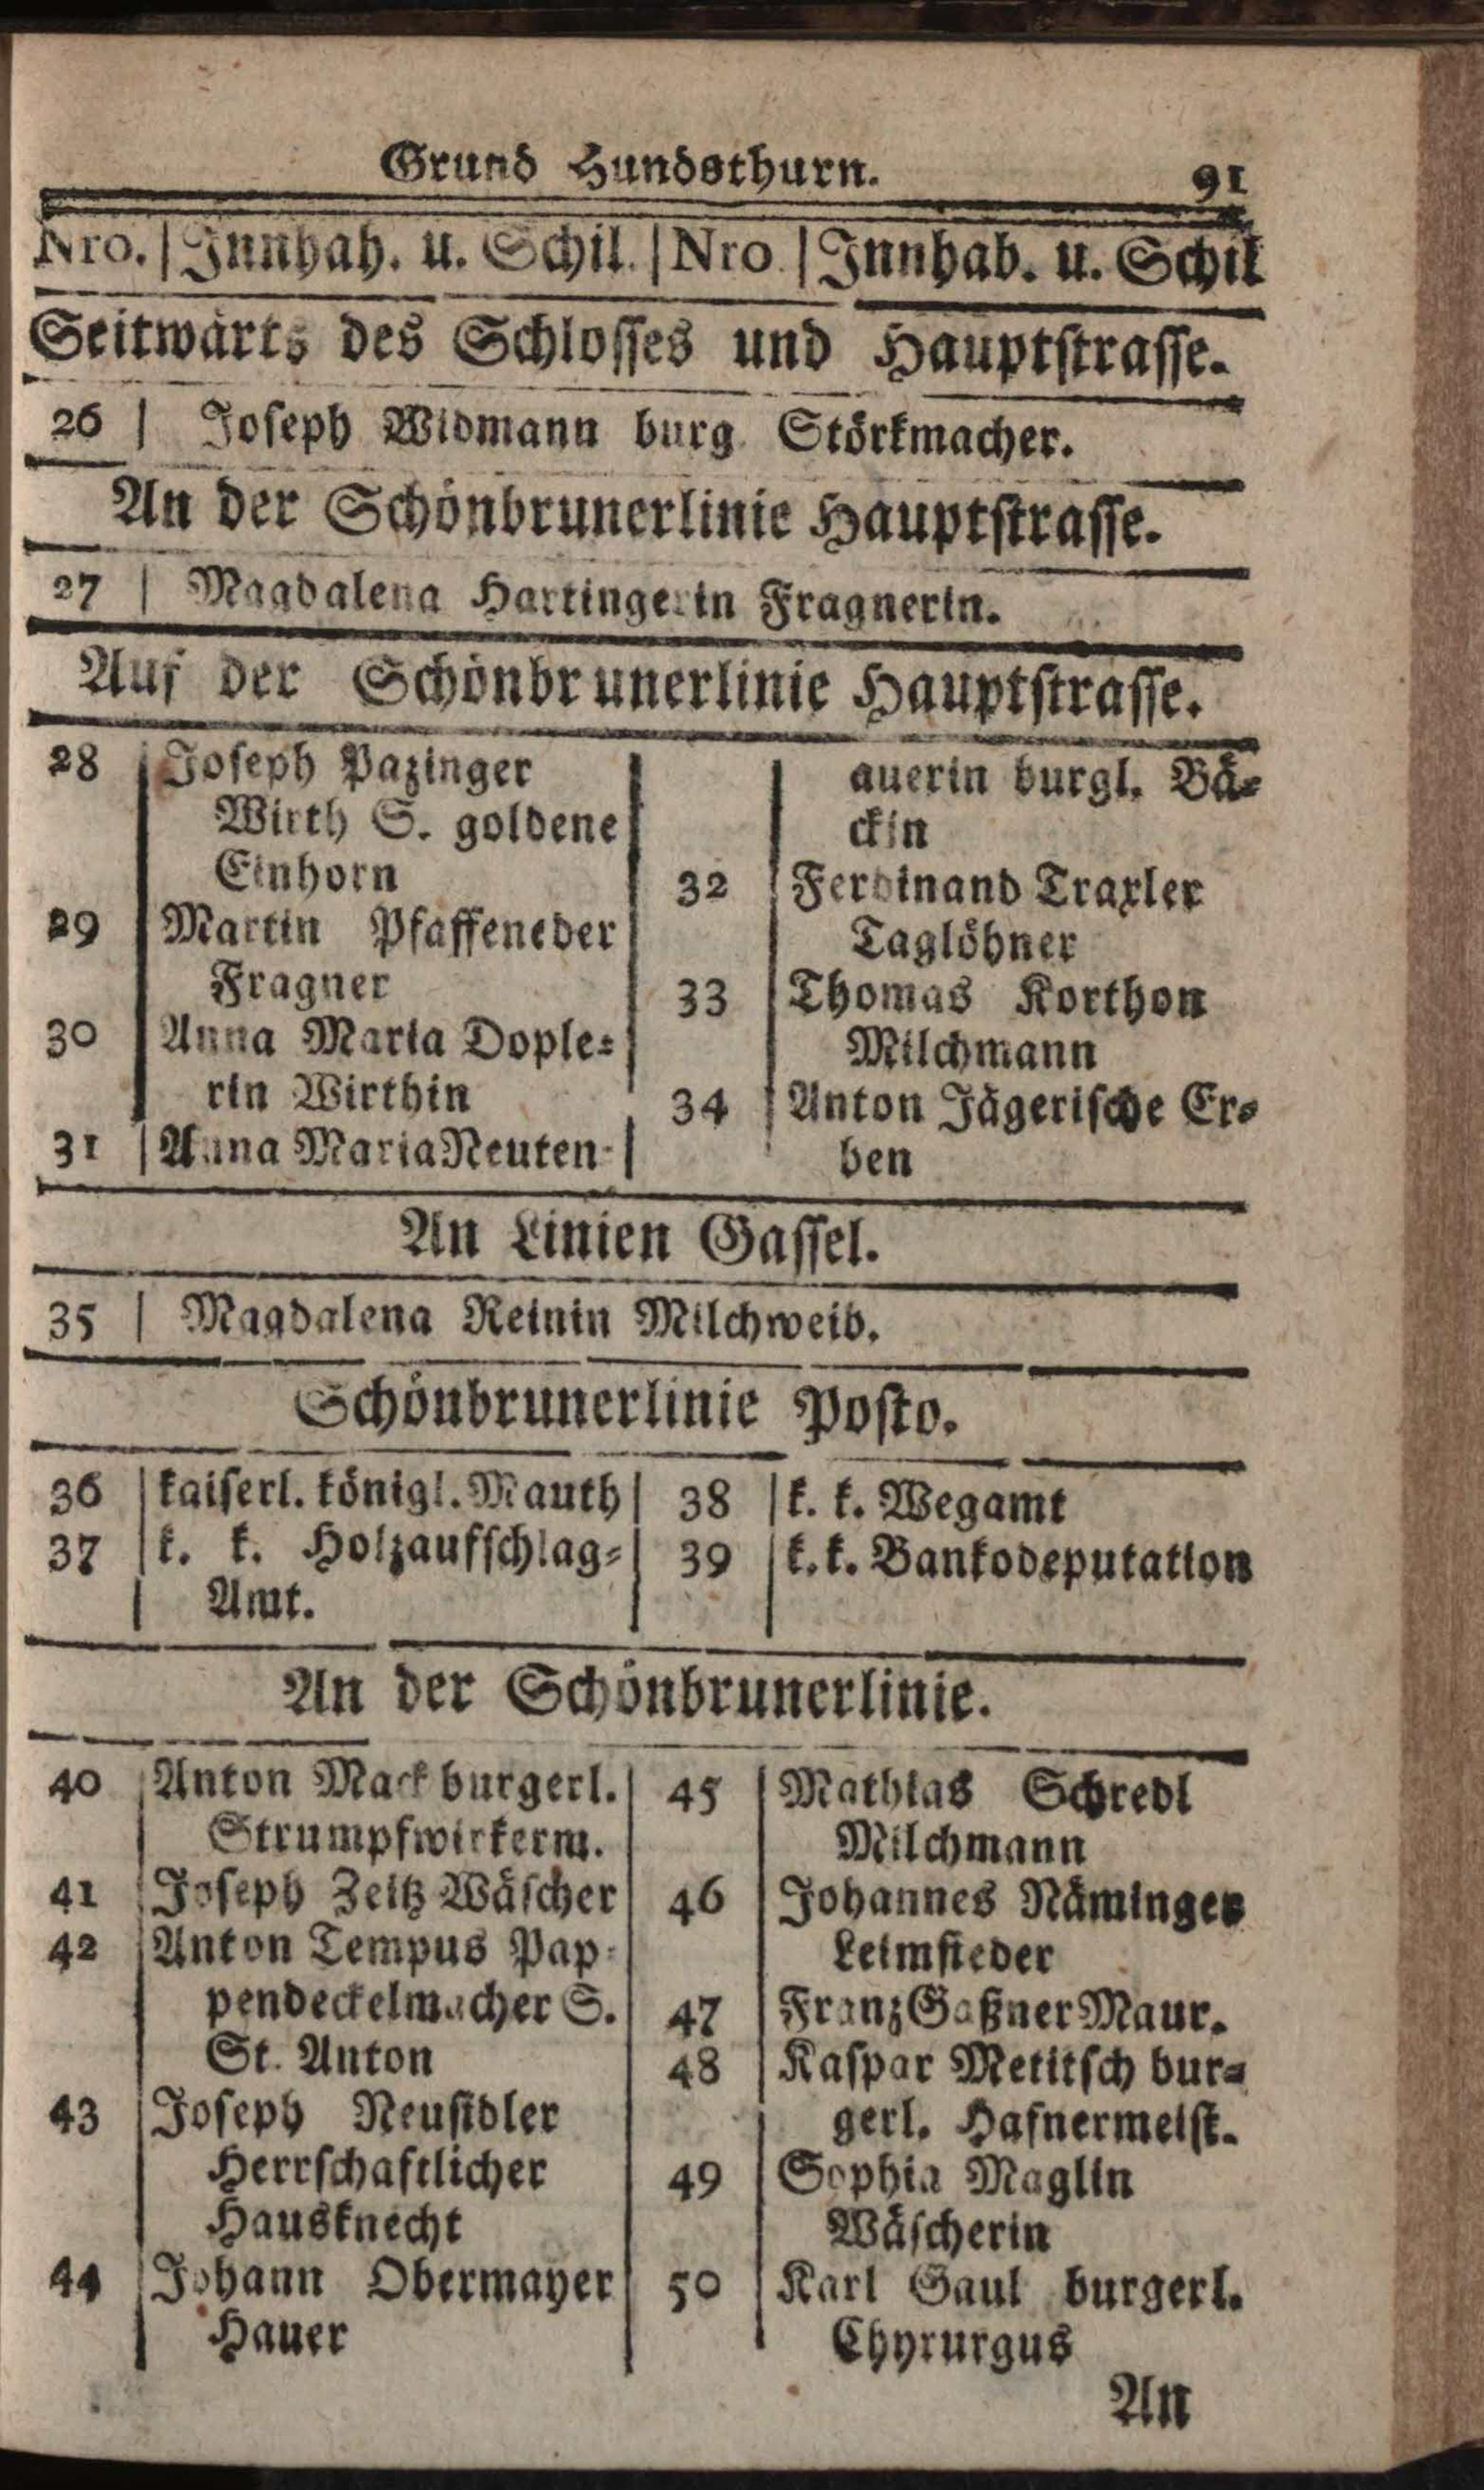 Grund Hundsthurn. 91
Nro. | Innhah. u. Schil. | Nro. | Innhab. u. Schil
Seitwärts des Schlosses und Hauptstrasse.
26 | Joseph Widmann burg. Störkmacher.
An der Schönbrunerlinie Hauptstrasse.
27 | Magdalena Hartingerin Fragnerin.
Auf der Schönbrunerlinie Hauptstrasse.
28 Joseph Pazinger
Wirth S. goldene
Einhorn
29 Martin Pfaffeneder
Fragner
30 Anna Maria Dople=
rin Wirthin
31 Anna Maria Neuten-
auerin burgl. Bä=
ckin
32 Ferdinand Traxler
Taglöhner
33 Thomas Korthon
Milchmann
34 Anton Jägerische Er=
ben
An Linien Gassel.
35 | Magdalena Reinin Milchweib.
Schönbrunerlinie Posto.
36 kaiserl. königl. Mauth
37 k. k. Holzaufschlag=
Amt.
38 k. k. Wegamt
39 k. k. Bankodeputation
An der Schönbrunerlinie.
40 Anton Mack burgerl.
Strumpfwirkerm.
41 Joseph Zeitz Wäscher
42 Anton Tempus Pap=
pendeckelmacher S.
St. Anton
43 Joseph Neusidler
Herrschaftlicher
Hausknecht
44 Johann Obermayer
Hauer
45 Mathias Schredl
Milchmann
46 Johannes Näminger
Leimsieder
47 Franz Gaßner Maur.
48 Kaspar Metitsch bur=
gerl. Hafnermeist.
49 Sophia Maglin
Wäscherin
50 Karl Gaul burgerl.
Chyrurgus
An